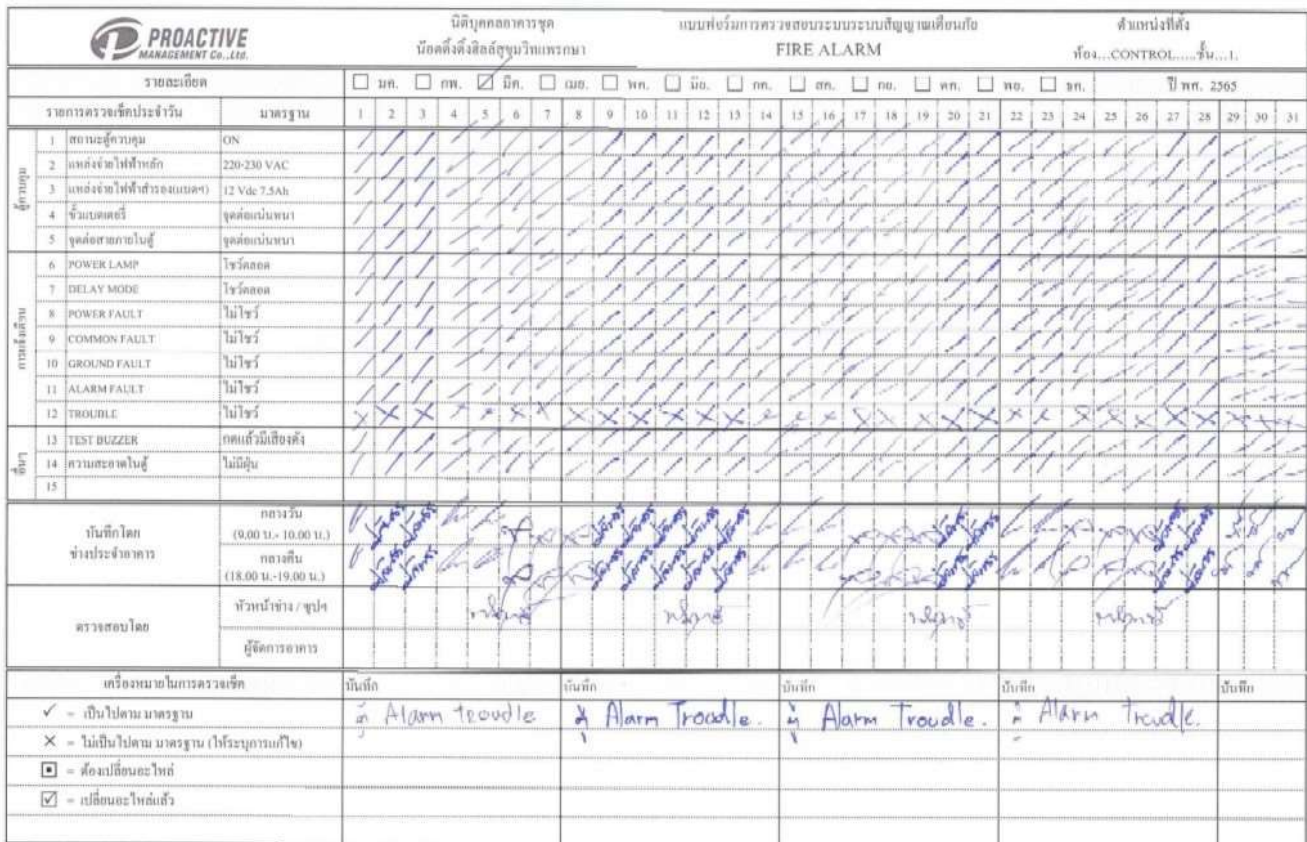 PROACTIVE
MANAGEMENT Co.,Ltd.
นิติบุคคลอาคารชุด
น็อตติ้งฮิลล์สุขุมวิทแพรกษา
แบบฟอร์มการตรวจสอบระบบระบบสัญญาณเตือนภัย
FIRE ALARM
ตำแหน่งที่ตั้ง
ห้อง...CONTROL.....ชั้น...1.
รายละเอียด ☐ มค. ☐ กพ. ☑ มีค. ☐ เมย. ☐ พค. ☐ มิย. ☐ กค. ☐ สค. ☐ กย. ☐ ตค. ☐ พย. ☐ ธค. ปี พศ. 2565
รายการตรวจเช็คประจำวัน มาตรฐาน 1 2 3 4 5 6 7 8 9 10 11 12 13 14 15 16 17 18 19 20 21 22 23 24 25 26 27 28 29 30 31
ตู้ควบคุม
1 สถานะตู้ควบคุม ON
2 แหล่งจ่ายไฟฟ้าหลัก 220-230 VAC
3 แหล่งจ่ายไฟฟ้าสำรอง(แบตฯ) 12 Vdc 7.5Ah
4 ขั้วแบตเตอรี่ จุดต่อแน่นหนา
5 จุดต่อสายภายในตู้ จุดต่อแน่นหนา
การแจ้งเตือน
6 POWER LAMP โชว์ตลอด
7 DELAY MODE โชว์ตลอด
8 POWER FAULT ไม่โชว์
9 COMMON FAULT ไม่โชว์
10 GROUND FAULT ไม่โชว์
11 ALARM FAULT ไม่โชว์
12 TROUBLE ไม่โชว์
อื่นๆ
13 TEST BUZZER กดแล้วมีเสียงดัง
14 ความสะอาดในตู้ ไม่มีฝุ่น
15
บันทึกโดย
ช่างประจำอาคาร
กลางวัน
(9.00 น.- 10.00 น.)
กลางคืน
(18.00 น.-19.00 น.)
ตรวจสอบโดย
หัวหน้าช่าง / ซุปฯ
ผู้จัดการอาคาร
เครื่องหมายในการตรวจเช็ค บันทึก บันทึก บันทึก บันทึก บันทึก
✓ = เป็นไปตาม มาตรฐาน
ตู้ Alarm troudle
ตู้ Alarm Troudle.
ตู้ Alarm Troudle.
ตู้ Alarm troudle.
✕ = ไม่เป็นไปตาม มาตรฐาน (ให้ระบุการแก้ไข)
▣ = ต้องเปลี่ยนอะไหล่
☑ = เปลี่ยนอะไหล่แล้ว